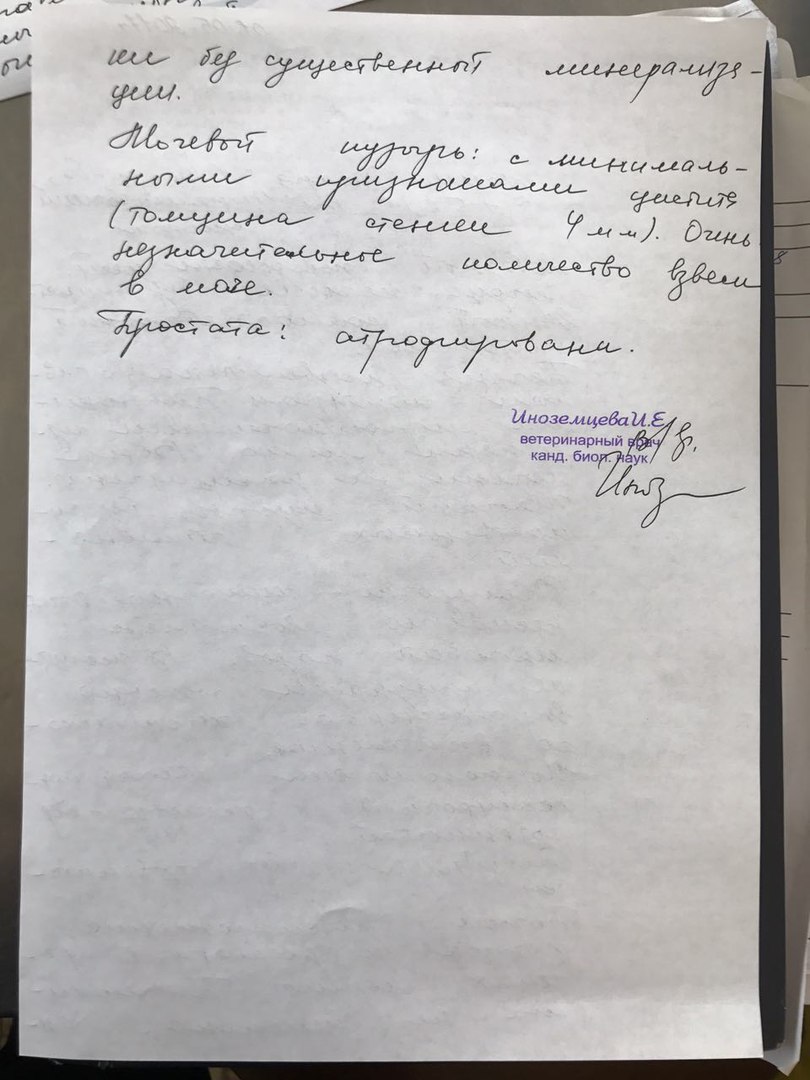 ки без существенной минерализа-
ции.
Мочевой пузырь: с минималь-
ными признаками цистита
(толщина стенки 4 мм). Очень
незначительное количество взвеси
в моче.
Простата: атрофирована.
Иноземцева И.Е.
ветеринарный врач
канд. биол. наук